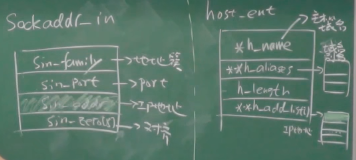 Sockaddr_in
sin_family → 地址簇
sin_port → port
sin_addr → IP地址
sin_zero[] → 对齐
host_ent
**h_name
**h_aliases
h_length
**h_addr_list
IP地址